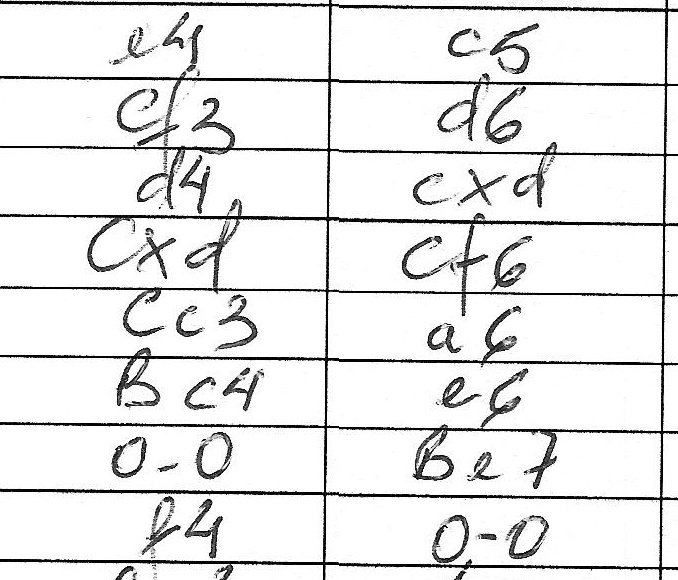 e4 c5
Cf3 d6
d4 cxd
Cxd Cf6
Cc3 a6
Bc4 e6
0-0 Be7
f4 0-0